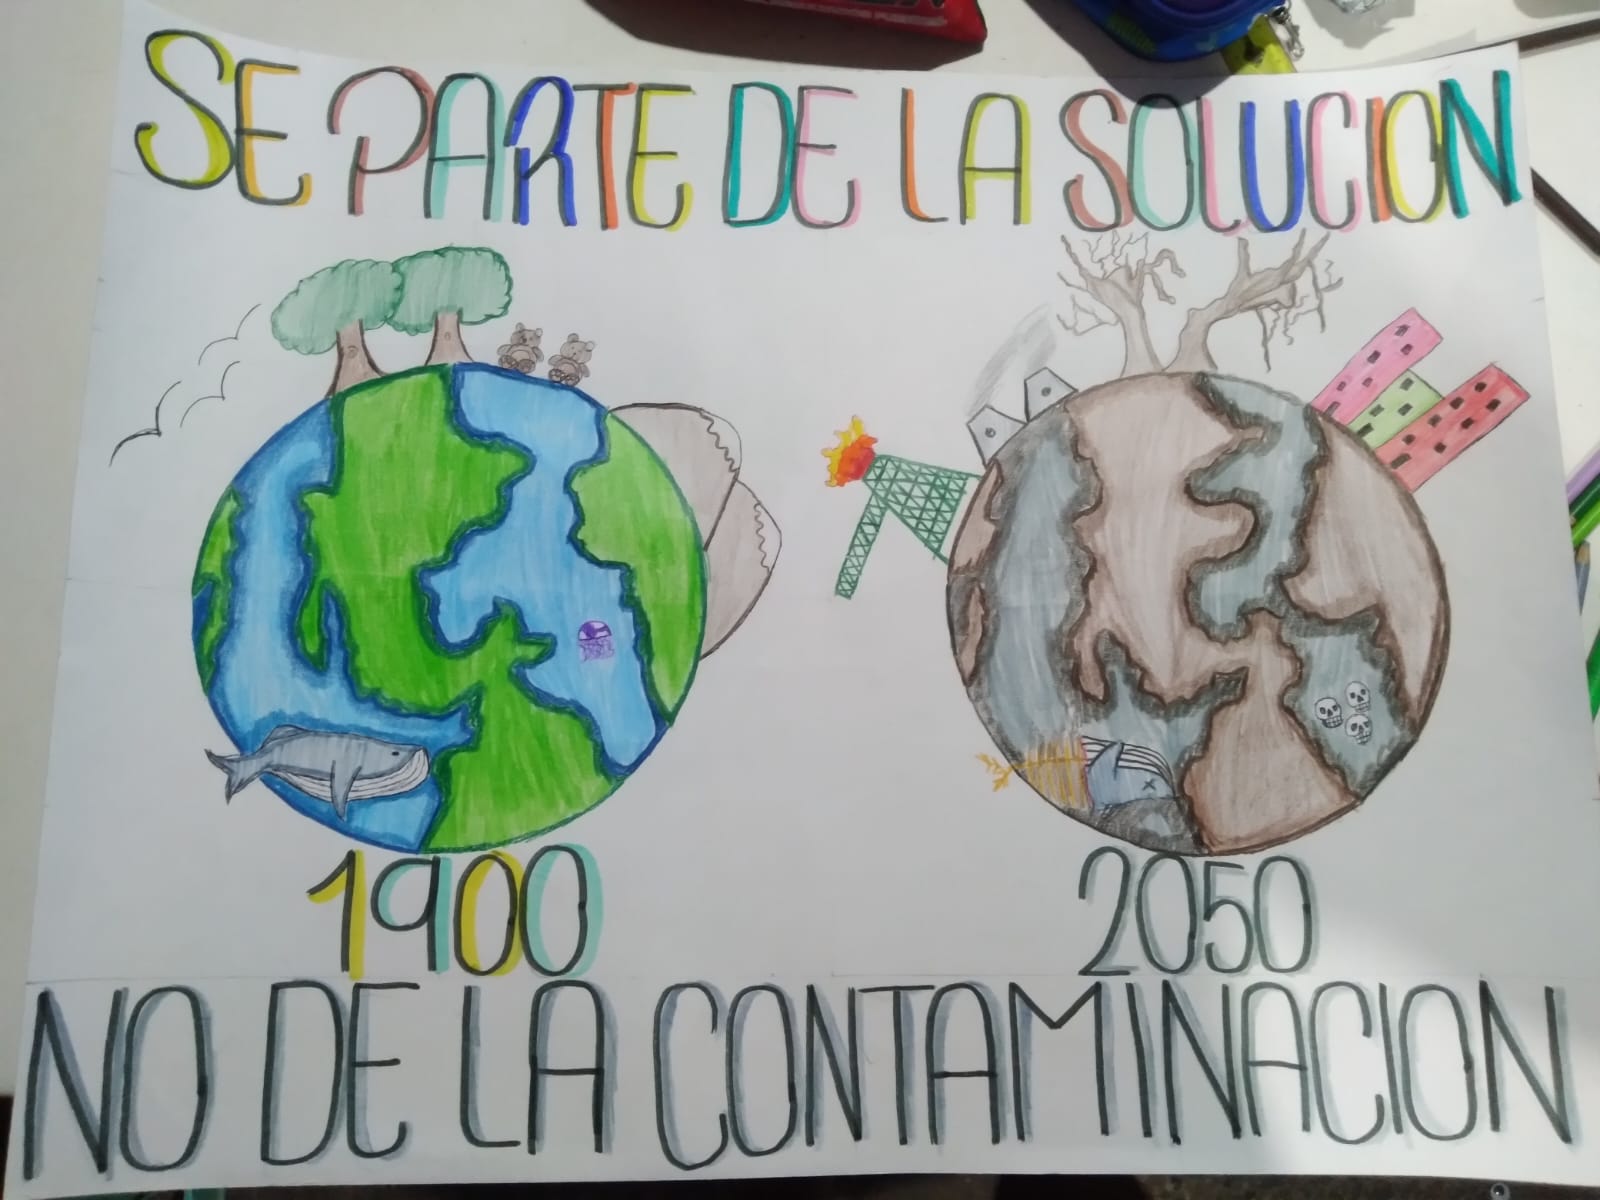 SE PARTE DE LA SOLUCION
1900
2050
NO DE LA CONTAMINACION